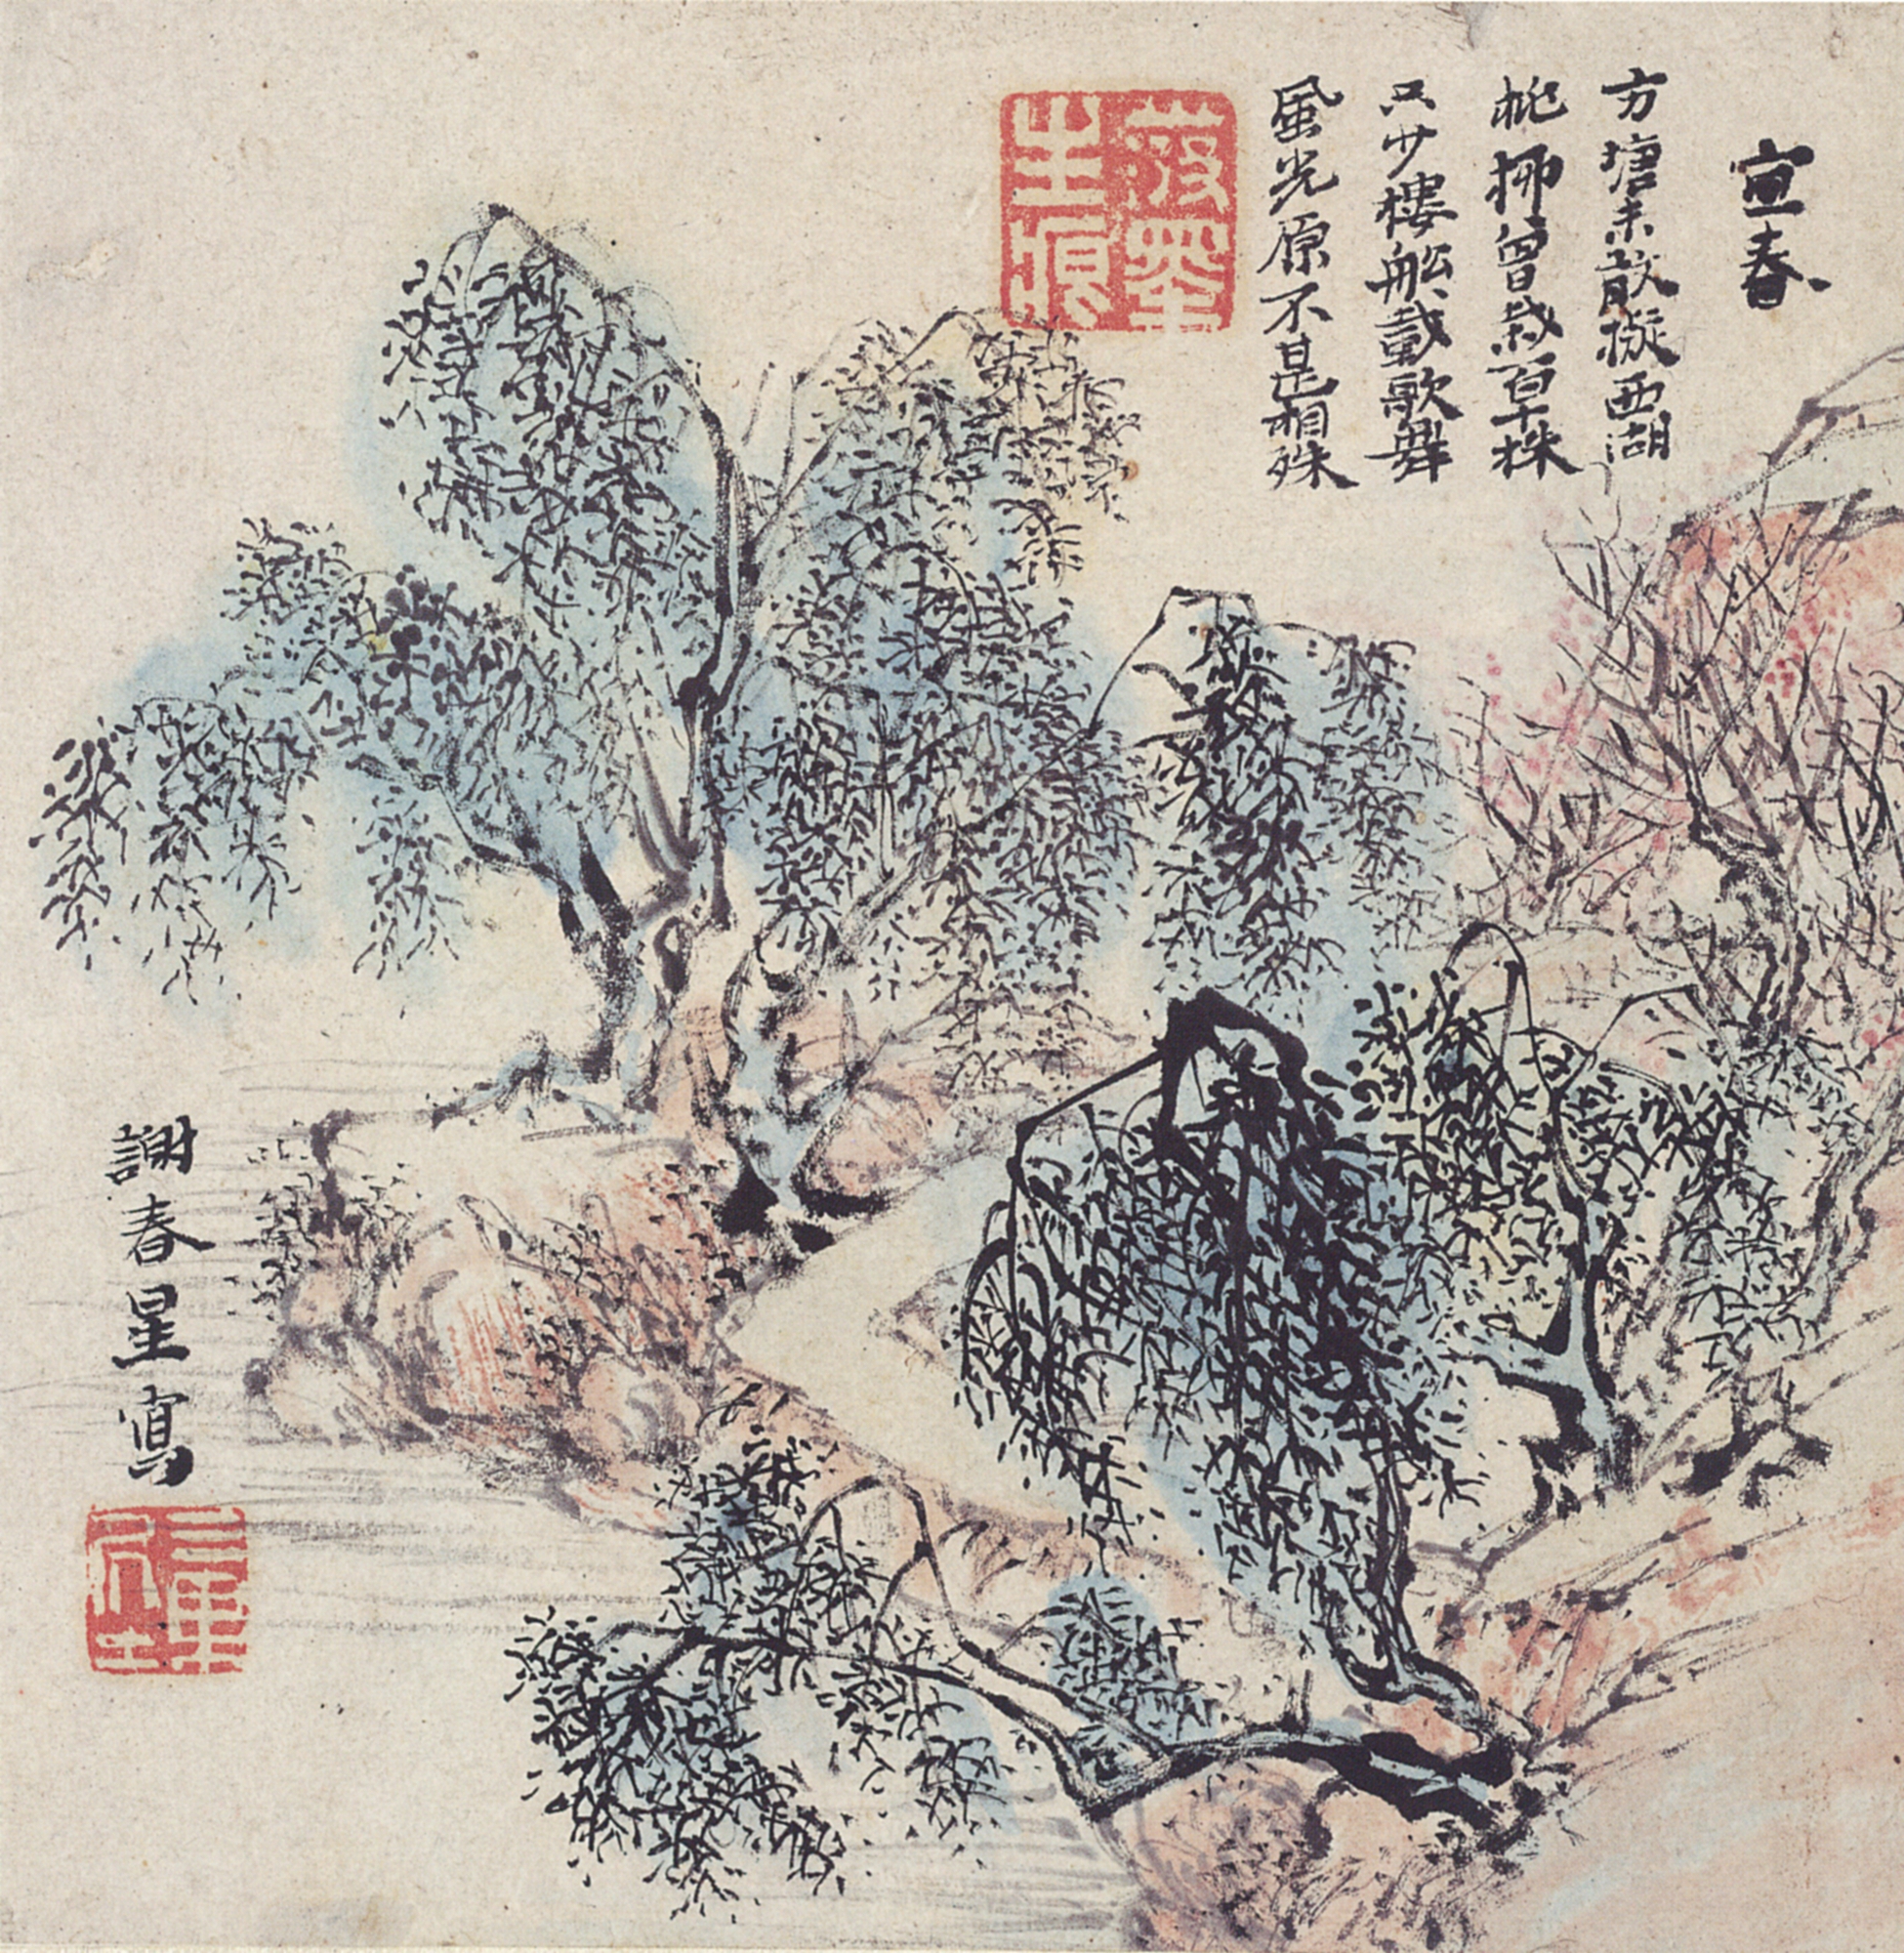 宜春
方塘未敢擬西湖
桃柳曾栽百十株
只少樓船載歌舞
風光原不是相殊
落墨生痕
謝春星寫